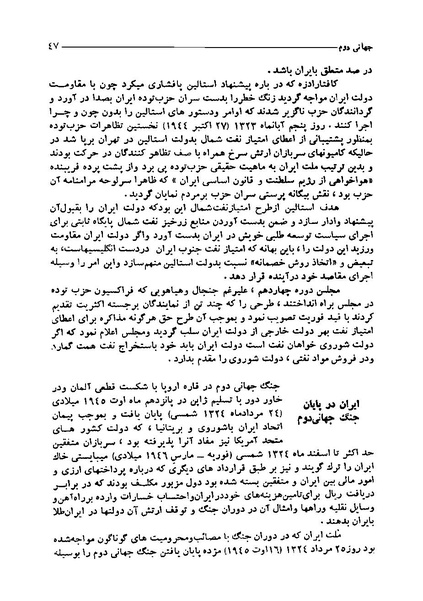 جهانی دوم ۴۷
در صد متعلق بایران باشد .
کافتارادزه که در باره پیشنهاد استالین پافشاری میکرد چون با مقاومت
دولت ایران مواجه گردید زنگ خطر را بدست سران حزب‌توده ایران بصدا در آورد و
گردانندگان حزب ناگزیر شدند که اوامر و دستور های استالین را بدون چون و چرا
اجرا کنند . روز پنجم آبانماه ۱۳۲۳ (۲۷ اکتبر ۱۹۴۴) نخستین تظاهرات حزب‌توده
بمنظور پشتیبانی از اعطای امتیاز نفت شمال بدولت استالین در تهران برپا شد در
حالیکه کامیونهای سربازان ارتش سرخ همراه با صف تظاهر کنندگان در حرکت بودند
و بدین ترتیب ملت ایران به ماهیت حقیقی حزب‌توده پی برد و از پشت پرده فریبنده
«هواخواهی از رژیم سلطنت و قانون اساسی ایران » که ظاهرا سرلوحه مرامنامه آن
حزب بود ، نقش بیگانه پرستی سران حزب بر مردم نمایان گردید .
هدف استالین از طرح امتیاز نفت شمال این بود که دولت ایران را بقبول آن
پیشنهاد وادار سازد و ضمن بدست آوردن منابع زرخیز نفت شمال پایگاه ثابتی برای
اجرای سیاست توسعه طلبی خویش در ایران بدست آورد و اگر دولت ایران مقاومت
ورزید این دولت را ، باین بهانه که امتیاز نفت جنوب ایران در دست انگلیسیهاست، به
تبعیض و «اتخاذ روش خصمانه» نسبت بدولت استالین متهم سازد و این امر را وسیله
اجرای مقاصد خود در آینده قرار دهد .
مجلس دوره چهاردهم ، علیرغم جنجال و هیاهویی که فراکسیون حزب توده
در مجلس براه انداختند ، طرحی را که چند تن از نمایندگان برجسته اکثریت تقدیم
کردند با قید فوریت تصویب نمود و بموجب آن طرح حق هرگونه مذاکره برای اعطای
امتیاز نفت بهر دولت خارجی از دولت ایران سلب گردید و مجلس اعلام نمود که اگر
دولت شوروی خواهان نفت است دولت ایران باید خود باستخراج نفت همت گمارد
و در فروش مواد نفتی ، دولت شوروی را مقدم بدارد .
ایران در پایان
جنگ جهانی‌دوم
جنگ جهانی دوم در قاره اروپا با شکست قطعی آلمان و در
خاور دور با تسلیم ژاپن در پانزدهم ماه اوت ۱۹۴۵ میلادی
(۲۴ مردادماه ۱۳۲۴ شمسی) پایان یافت و بموجب پیمان
اتحاد ایران باشوروی و بریتانیا ، که دولت کشور های
متحد آمریکا نیز مفاد آنرا پذیرفته بود ، سربازان متفقین
حد اکثر تا اسفند ماه ۱۳۲۴ شمسی (فوریه – مارس ۱۹۴۶ میلادی) میبایستی خاک
ایران را ترک گویند و نیز بر طبق قرارداد های دیگری که درباره پرداختهای ارزی و
امور مالی بین ایران و متفقین بسته شده بود دول مزبور مکلف بودند که در برابر
دریافت ریال برای تامین هزینه‌های خود در ایران و احتساب خسارات وارده براه‌آهن و
وسایل نقلیه و راهها و امثال آن در دوران جنگ و توقف ارتش آن دولتها در ایران طلا
بایران بدهند .
ملت ایران که در دوران جنگ با مصائب و محرومیت های گوناگون مواجه شده
بود روز ۲۵ مرداد ۱۳۲۴ (۱۶اوت ۱۹۴۵) مژده پایان یافتن جنگ جهانی دوم را بوسیله